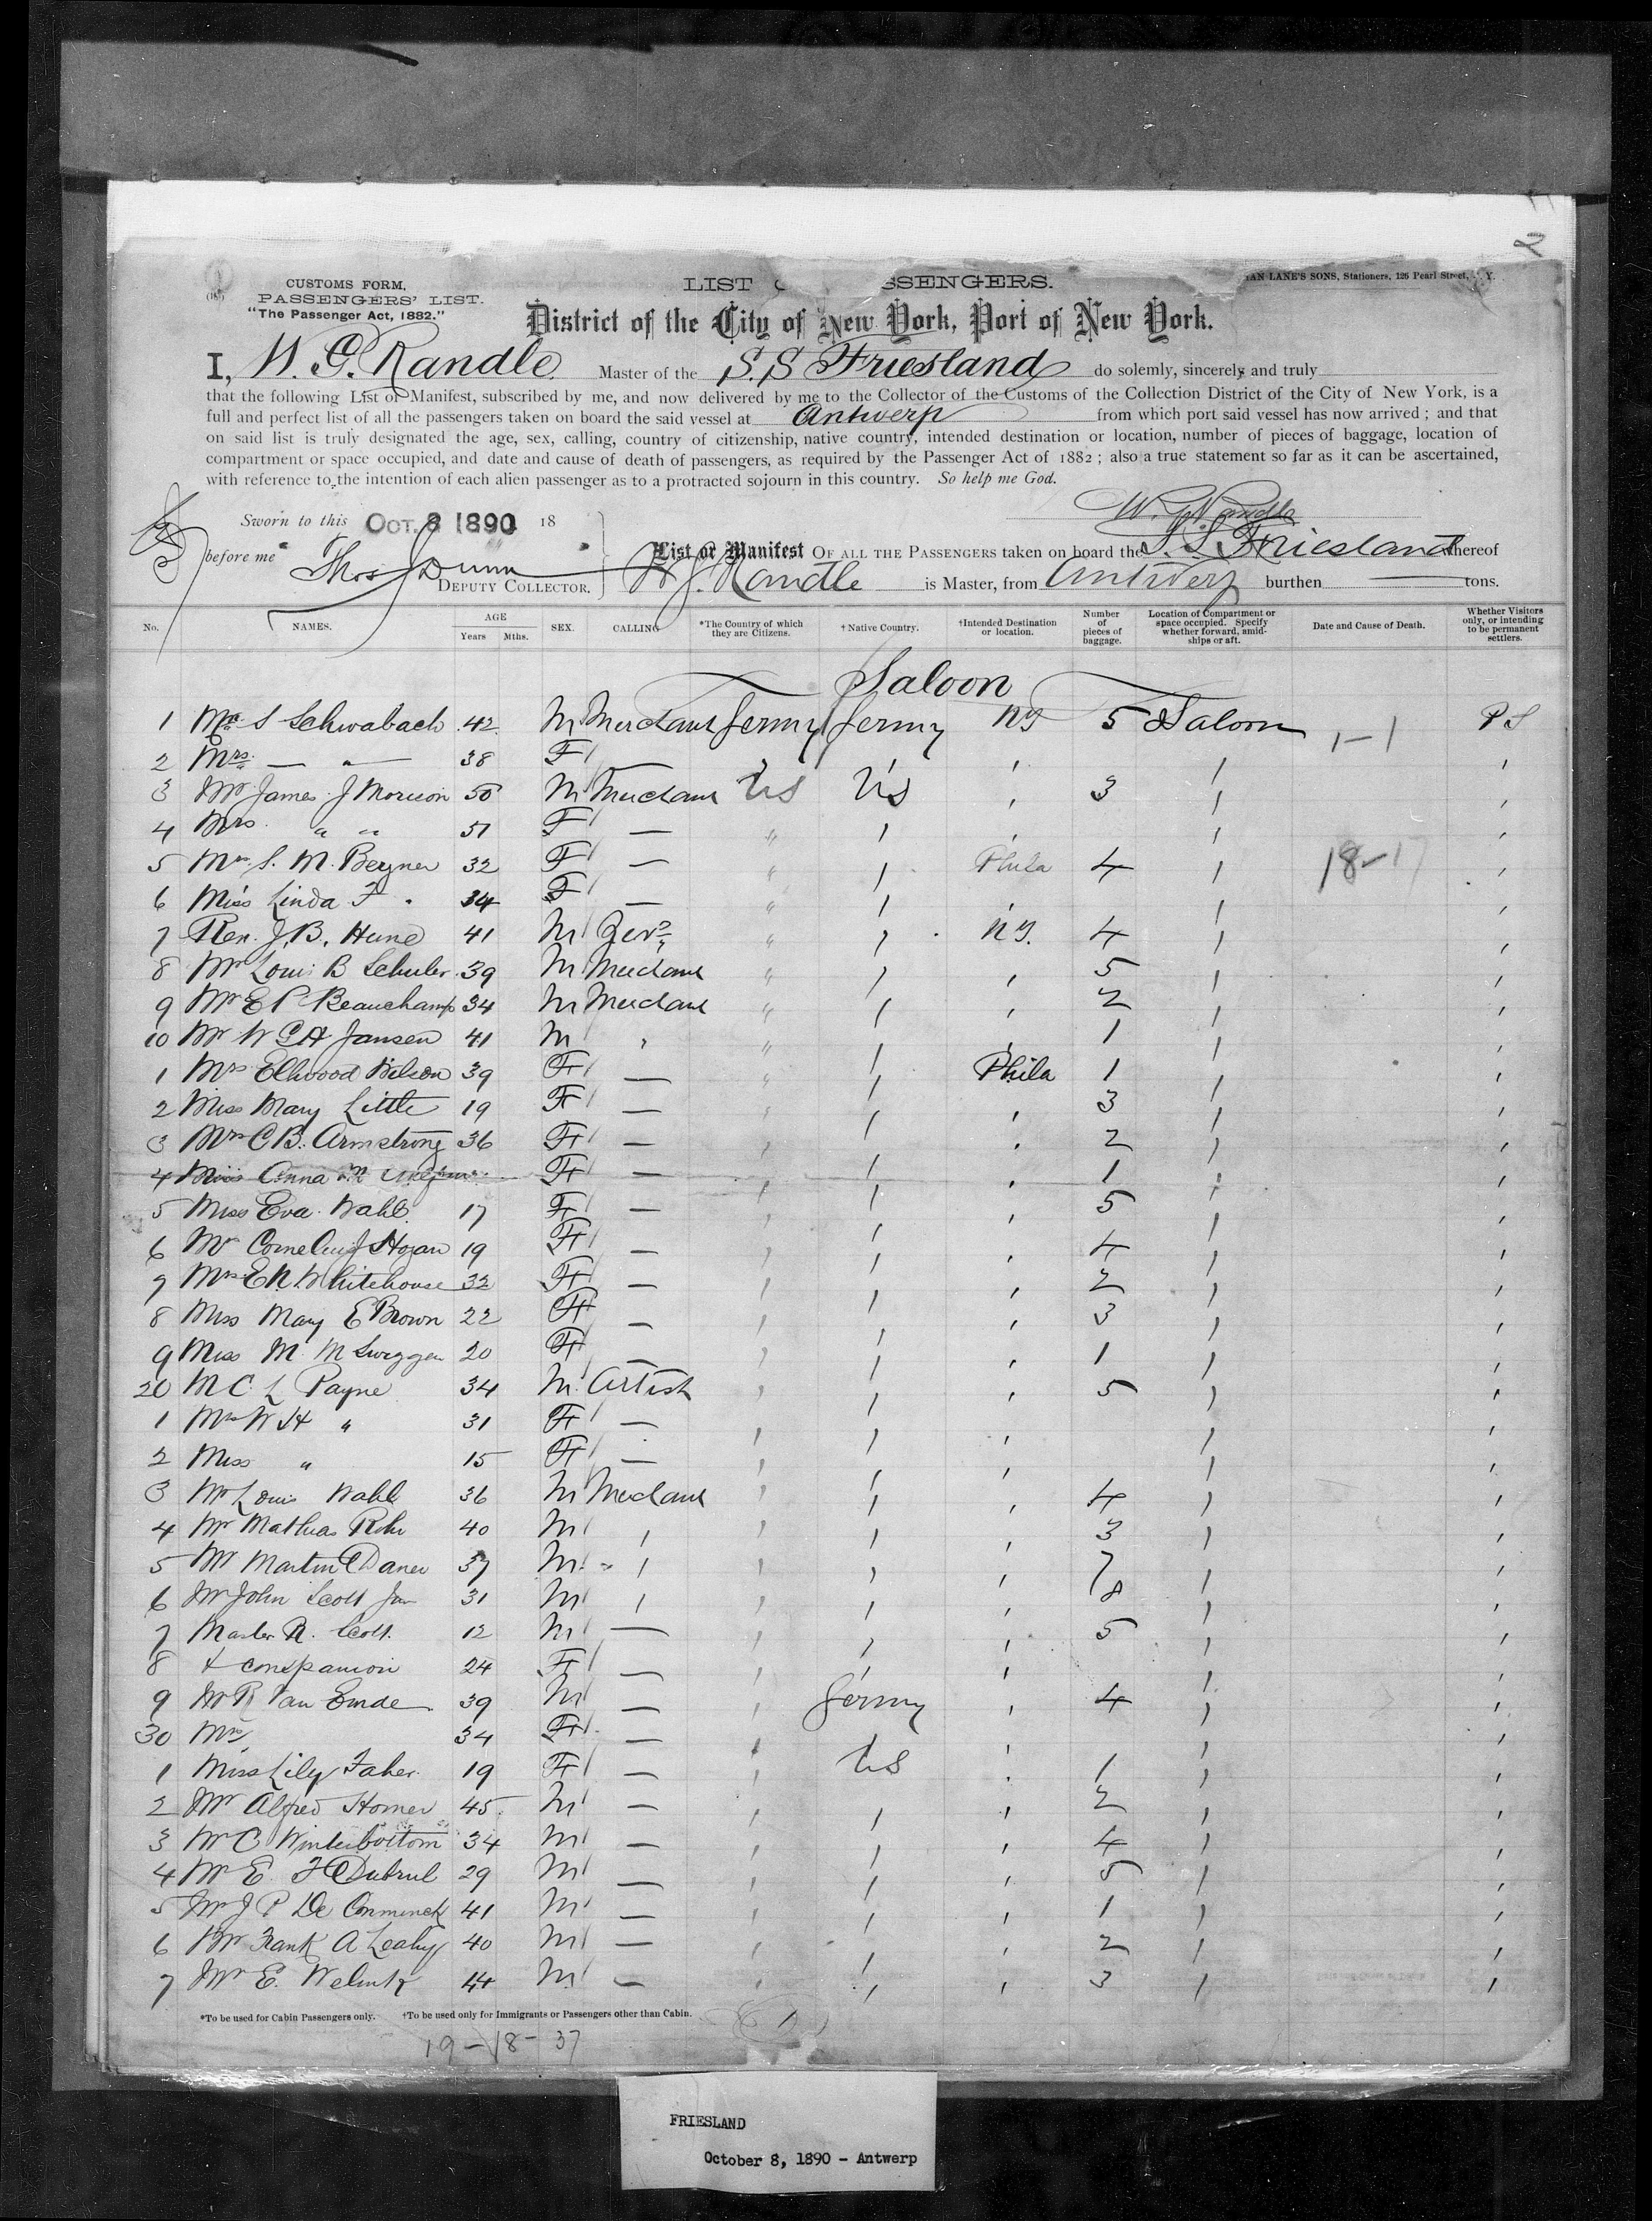 CUSTOMS FORM,
PASSENGERS' LIST.
"The Passenger Act, 1882."
LIST SSENGERS.
LANE'S SONS, Stationers, 126 Pearl Street, Y.
District of the City of New York, Port of New York.
I, W. G. Randle Master of the S.S Friesland do solemnly, sincerely and truly
that the following List or Manifest, subscribed by me, and now delivered by me to the Collector of the Customs of the Collection District of the City of New York, is a
full and perfect list of all the passengers taken on board the said vessel at Antwerp from which port said vessel has now arrived; and that
on said list is truly designated the age, sex, calling, country of citizenship, native country, intended destination or location, number of pieces of baggage, location of
compartment or space occupied, and date and cause of death of passengers, as required by the Passenger Act of 1882; also a true statement so far as it can be ascertained,
with reference to the intention of each alien passenger as to a protracted sojourn in this country. So help me God.
W. G. Randle
Sworn to this OCT. 8 1890 18
before me Thos J Dunn
DEPUTY COLLECTOR.
List or Manifest OF ALL THE PASSENGERS taken on board the S.S Friesland whereof
W G. Randle is Master, from Antwerp burthen tons.
No. NAMES. AGE Years Mths. SEX. CALLING *The Country of which they are Citizens. †Native Country. †Intended Destination or location. Number of pieces of baggage. Location of Compartment or space occupied. Specify whether forward, amidships or aft. Date and Cause of Death. Whether Visitors only, or intending to be permanent settlers.
Saloon
1 Mr S Schwabach 42 M Merchant Germy Germy NY 5 Saloon 1-1 P S
2 Mrs — " — 38 F
3 Mr James J Morison 50 M Merchant US US 3
4 Mrs " " 51 F —
5 Mrs S. M. Beyner 32 F — " Phila 4 18-17
6 Miss Linda F 34 F — "
7 Rev. J. B. Hune 41 M " N Y. 4
8 Mr Louis B Schuler 39 M Merchant " 5
9 Mr E P Beauchamp 34 M Merchant " 2
10 Mr W C A Jansen 41 M " 1
1 Mrs Ellwood Wilson 39 F — " Phila 1
2 Miss Mary Little 19 F — 3
3 Mrs C B. Armstrong 36 F — 2
4 Miss Anna M F — 1
5 Miss Eva Wahl 17 F — 5
6 Mr Cornelius J Hogan 19 F — 4
7 Mrs E N Whitehouse 32 F — 2
8 Miss Mary E Brown 22 F — 3
9 Miss M M Swiggen 20 F — 1
20 M C L Payne 34 M Artist 5
1 Mrs W H " 31 F —
2 Miss " 15 F —
3 Mr Louis Wahl 36 M Merchant 4
4 Mr Mathias Rohr 40 M 3
5 Mr Martin Daner 37 M 7
6 Mr John Scott Jun 31 M 8
7 Master R. Scott. 12 M — 5
8 & companion 24 F —
9 Mr R Van Emde 39 M — Germy 4
30 Mrs 34 F —
1 Miss Lily Faher 19 F — US 1
2 Mr Alfred Homer 45 M — 2
3 Mr C Winterbottom 34 M — 4
4 Mr E F Dubrul 29 M — 5
5 Mr J P De Conminck 41 M — 1
6 Mr Frank A Leahy 40 M — 2
7 Mr E. Welink 44 M — 3
*To be used for Cabin Passengers only. †To be used only for Immigrants or Passengers other than Cabin.
19-18-37
FRIESLAND
October 8, 1890 - Antwerp